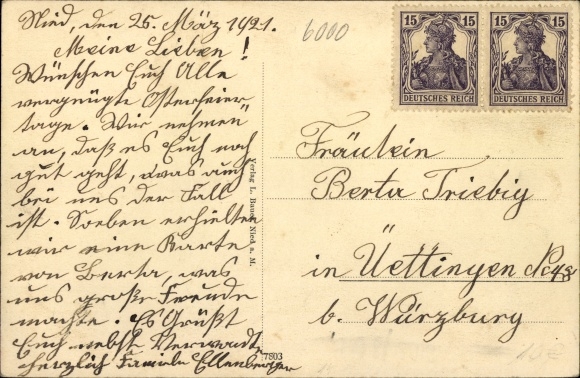 Nied, den 25. März 1921.
Meine Lieben!
Wünschen Euch Alle
vergnügte Osterfeier-
tage. Wir nehmen
an, daß es Euch noch
gut geht, was auch
bei uns der Fall
ist. Soeben erhielten
wir eine Karte
von Berta, was
uns große Freude
machte. Es Grüßt
Euch nebst Verwandte
herzlich Familie Ellenberger
Verlag L. Bauer, Nied a. M.
7803
6000
15 15
DEUTSCHES REICH
15 15
DEUTSCHES REICH
Fräulein
Berta Triebig
in Üettingen No 48
b. Würzburg